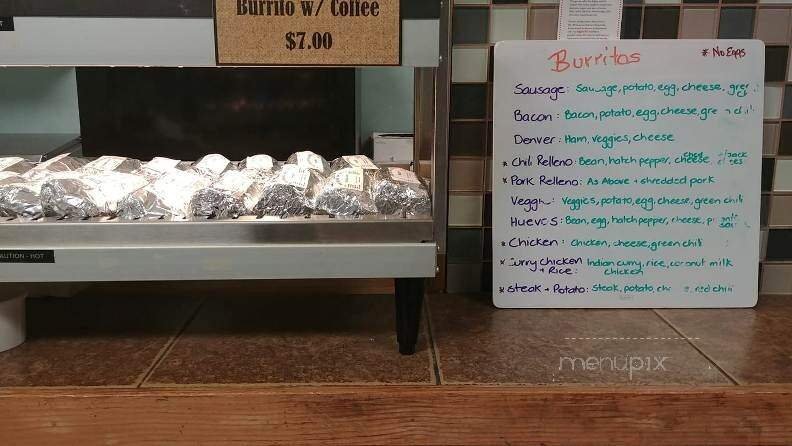 Burrito w/ Coffee
$7.00
CAUTION - HOT
Burritos
* No EGGS
Sausage: Sausage, potato, egg, cheese, green
Bacon: Bacon, potato, egg, cheese, green chili
Denver: Ham, veggies, cheese
* Chili Relleno: Bean, hatch pepper, cheese, jack
* Pork Relleno: As Above + shredded pork
Veggie: Veggies, potato, egg, cheese, green chili
Huevos: Bean, egg, hatch pepper, cheese,
* Chicken: chicken, cheese, green chili
* Curry chicken Indian curry, rice, coconut milk
+ Rice: chicken
* Steak + Potato: Steak, potato, red chili
menupix